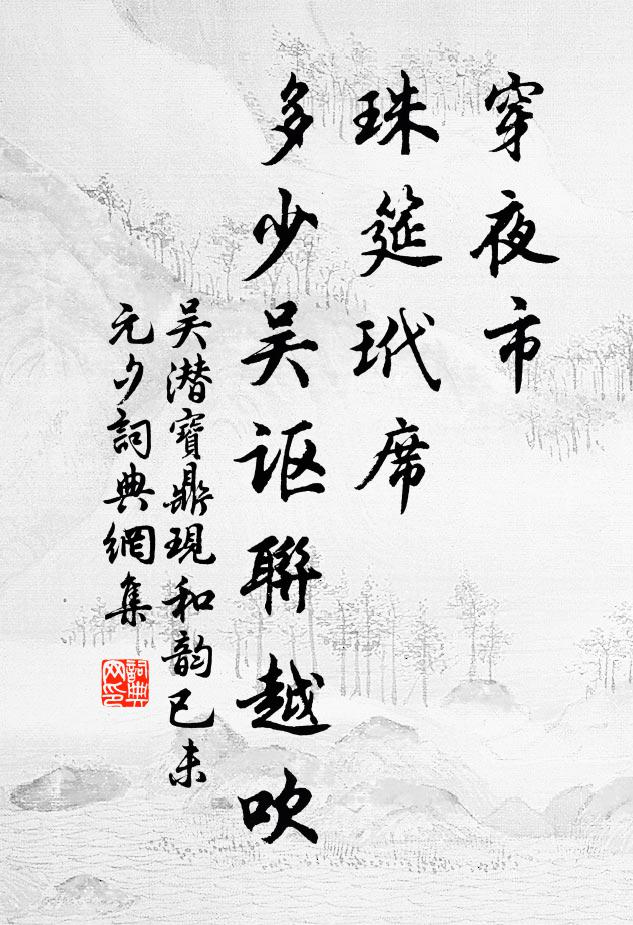 穿夜市
珠筵玳席
多少吴讴聯越吹
吴潜寶鼎現和韵已未
元夕詞典網集
詞典网印